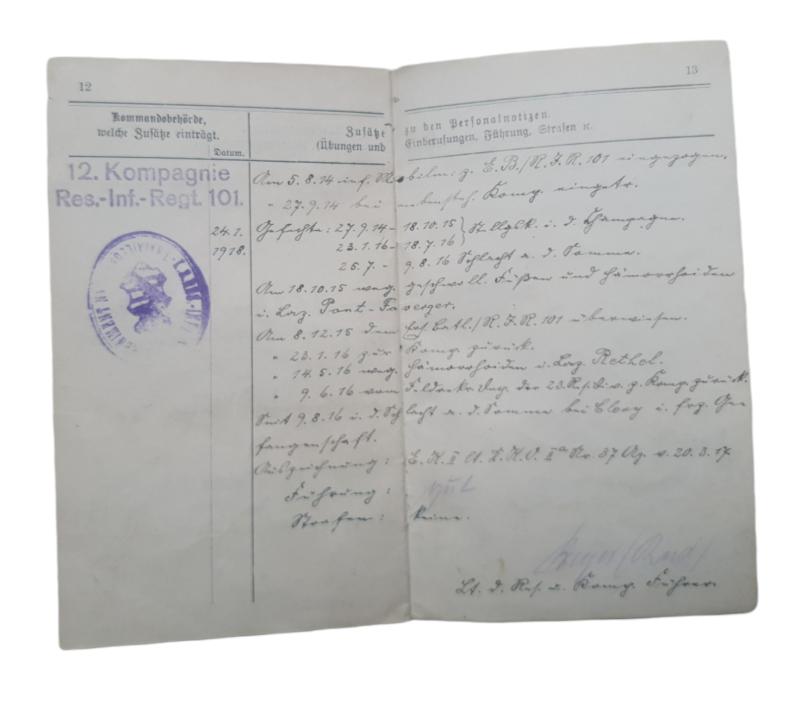 12
13
Kommandobehörde,
welche Zusätze einträgt.
Datum.
Zusätze zu den Personalnotizen.
(Übungen und Einberufungen, Führung, Strafen ꝛc.
12. Kompagnie
Res.-Inf.-Regt. 101.
24.1.
1918.
Am 5.8.14 inf. Mobilm. z. E.B./R.J.R. 101 eingezogen,
" 27.9.14 bei nebensteh. Komp. eingetr.
Gefechte: 27.9.14 - 18.10.15 } Stellgsk. i. d. Champagne.
23.1.16 - 18.7.16
25.7. - 9.8.16 Schlacht a. d. Somme.
Am 18.10.15 weg. geschwoll. Füßen und Hämorrhoiden
i. Laz. Pont-Faverger.
Am 8.12.15 dem Ers. Batl./R.J.R. 101 überwiesen.
" 23.1.16 zur Komp. zurück.
" 14.5.16 weg. Hämorrhoiden i. Laz. Rethel.
" 9.6.16 vom Feldrekr. Dep. der 23. R. Div. z. Komp. zurück.
Seit 9.8.16 i. d. Schlacht a. d. Somme bei Clery i. frz. Ge
fangenschaft.
Auszeichnung: E.K. II lt. K.K.O. IIa Nr. 37 Az. v. 20.3.17
Führung: gut
Strafen: keine.
Lt. d. Res. u. Komp. Führer.